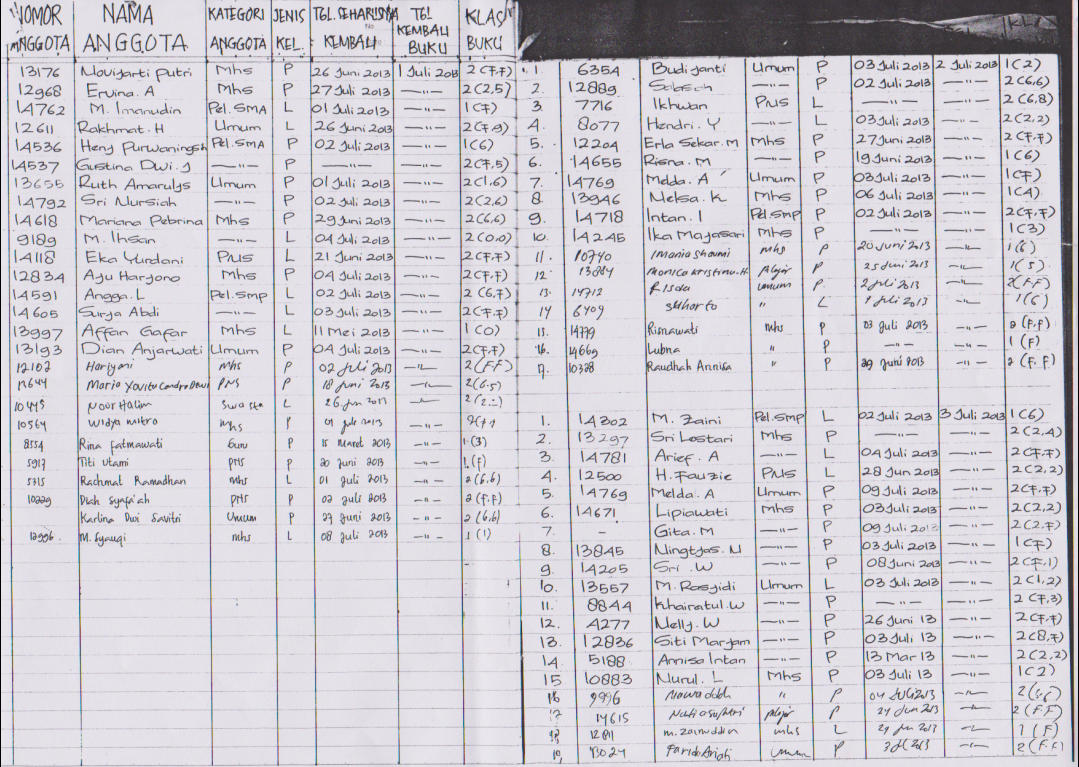 NOMOR ANGGOTA NAMA ANGGOTA KATEGORI ANGGOTA JENIS KEL. TGL. SEHARUSNYA KEMBALI TGL KEMBALI BUKU KLAS BUKU
13176 Novijarti Putri Mhs P 26 Juni 2013 1 Juli 2013 2(7,7)
12968 Ervina. A Mhs P 27 Juli 2013 —"— 2(2,5)
14762 M. Imanudin Pel.SMA L 01 Juli 2013 —"— 1(7)
12611 Rakhmat. H Umum L 26 Juni 2013 —"— 2(7,9)
14536 Heny Purwaningsh Pel.SMA P 02 Juli 2013 —"— 1(6)
14537 Gustina Dwi. J —"— P —"— —"— 2(7,5)
13655 Ruth Amarulys Umum P 01 Juli 2013 —"— 2(1,6)
14792 Sri Nursiah —"— P 02 Juli 2013 —"— 2(2,6)
14618 Mariana Pebrina Mhs P 29 Juni 2013 —"— 2(6,6)
9189 M. Ihsan —"— L 04 Juli 2013 —"— 2(0,0)
14118 Eka Yurdani PNS L 21 Juni 2013 —"— 2(7,7)
12834 Ayu Haryono Mhs P 04 Juli 2013 —"— 2(7,7)
14591 Angga. L Pel.Smp L 02 Juli 2013 —"— 2(6,7)
14605 Surya Abdi —"— L 03 Juli 2013 —"— 2(7,7)
13997 Affan Gafar Mhs L 11 Mei 2013 —"— 1(0)
13193 Dian Anjarwati Umum P 04 Juli 2013 —"— 2(7,7)
12102 Hariyani Mhs P 02 Juli 2013 —"— 2(7,7)
Maria Yovita PNS P 18 Juni 2013 —"— 2(6.5)
10445 Noor Halim Swasta L —"—
10564 Widya mitro Mhs P 01 Juli 2013 —"—
8554 Rina fatmawati Guru P 15 Maret 2013 —"— 1(3)
5917 Titi Utami PNS P 20 Juni 2013 —"— 1(7)
5315 Rachmat Ramadhan Mhs L 01 Juli 2013 —"— 2(6,6)
10229 Diah Syafa'ah PNS P 02 Juli 2013 —"— 2(7,7)
Karlina Dwi Savitri Umum P 27 Juni 2013 —"— 2(6,6)
12996 M. Syauqi Mhs L 08 Juli 2013 —"— 1(1)
1. 6354 Budijanti Umum P 03 Juli 2013 2 Juli 2013 1(2)
2. 12889 —"— P 02 Juli 2013 —"— 2(6,6)
3. 7716 Ikhwan PNS L —"— —"— 2(6,8)
4. 8077 Hendri. Y —"— L 03 Juli 2013 —"— 2(2,2)
5. 12204 Erla Sekar. M Mhs P 27 Juni 2013 —"— 2(7,7)
6. 14655 Risna. M —"— P 19 Juni 2013 —"— 1(6)
7. 14769 Melda. A Umum P 03 Juli 2013 —"— 1(7)
8. 13946 Melsa. K Mhs P 06 Juli 2013 —"— 1(4)
9. 14718 Intan. I Pel.Smp P 02 Juli 2013 —"— 2(7,7)
10. 14245 Ika Mayasari Mhs P —"— —"— 1(3)
11. 10740 Imania Shaumi Mhs P 20 Juni 2013 —"— 1(6)
12. 13884 Monica Kristina.H. Pelajar P 25 Juni 2013 —"— 1(5)
13. 14712 Risda Umum P 2 Juli 2013 —"— 2(7,7)
14 6409 Suharto " L 1 Juli 2013 —"— 1(6)
15. 14779 Risnawati Mhs P 03 Juli 2013 —"— 2(7,7)
16. 14669 Lubna " P —"— —"— 1(7)
17. 10328 Raudhah Annisa " P 29 Juni 2013 —"— 2(7,7)
1. 14302 M. Zaini Pel.Smp L 02 Juli 2013 3 Juli 2013 1(6)
2. 13297 Sri Lestari Mhs P —"— —"— 2(2,4)
3. 14781 Arief. A —"— L 04 Juli 2013 —"— 2(7,7)
4. 12500 H. Fauzie PNS L 28 Jun 2013 —"— 2(2,2)
5. 14769 Melda. A Umum P 09 Juli 2013 —"— 2(7,7)
6. 14671 Lipiawati Mhs P 03 Juli 2013 —"— 2(2,2)
7. - Gita. M —"— P 09 Juli 2013 —"— 2(2,7)
8. 13845 Ningtyas. N —"— P 03 Juli 2013 —"— 1(7)
9. 14205 Sri. W —"— P 08 Juni 2013 —"— 2(7,1)
10. 13557 M. Rosyidi Umum L 03 Juli 2013 —"— 2(1,2)
11. 8844 Khairatul. W —"— P —"— —"— 2(7,3)
12. 4277 Nelly. W —"— P 26 Juni 13 —"— 2(7,7)
13. 12836 Siti Maryam —"— P 03 Juli 13 —"— 2(8,7)
14. 5188 Annisa Intan —"— P 13 Mar 13 —"— 2(2,2)
15 10883 Nurul. L Mhs P 03 Juli 13 —"— 1(2)
16 9996 Mawaddah " P 04 Juli 2013 —"—
17 14615 Pelajar P 24 Jun 2013 —"— 2(7.7)
18 M. Zainuddin Mhs L —"— 1(7)
19. 13024 Farida Umum P 3 Jul 2013 —"— 2(7.7)